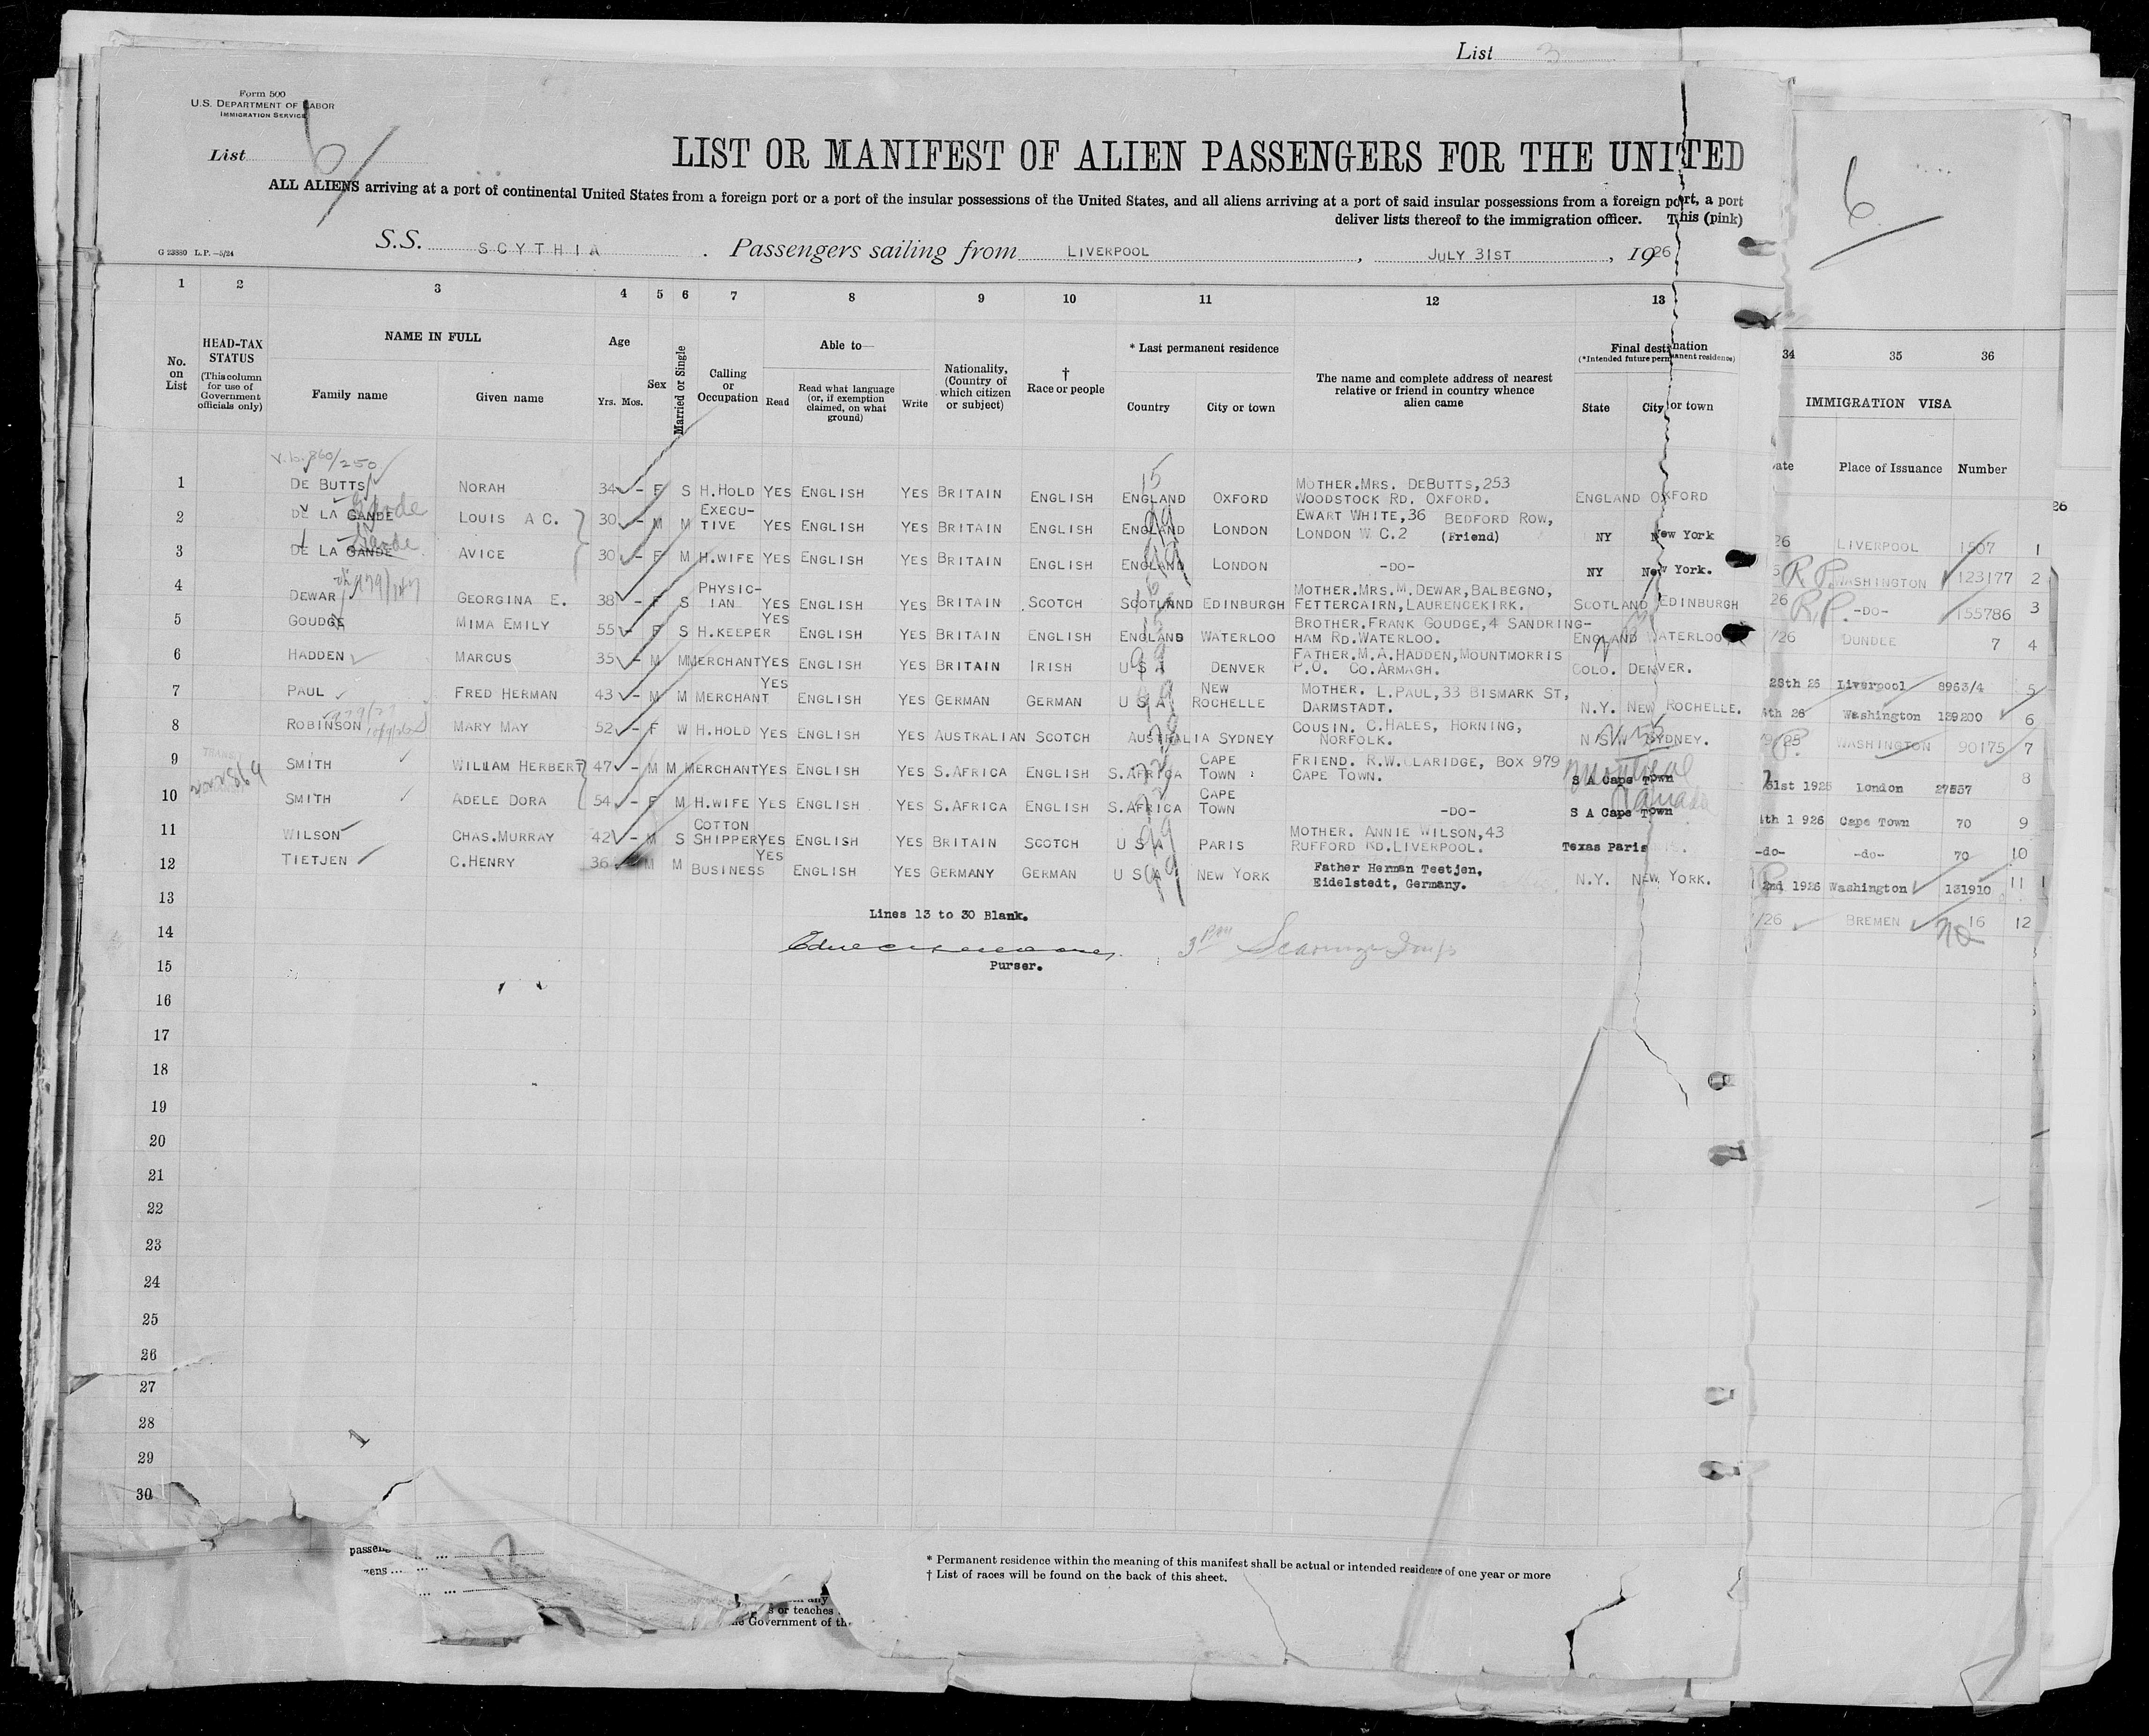 List 3
Form 500
U.S. DEPARTMENT OF LABOR
IMMIGRATION SERVICE
List 6
LIST OR MANIFEST OF ALIEN PASSENGERS FOR THE UNITED
ALL ALIENS arriving at a port of continental United States from a foreign port or a port of the insular possessions of the United States, and all aliens arriving at a port of said insular possessions from a foreign port, a port
deliver lists thereof to the immigration officer. This (pink)
6
G 23880 L.P.—5/24
S.S. SCYTHIA. Passengers sailing from LIVERPOOL, JULY 31ST, 1926
1 2 3 4 5 6 7 8 9 10 11 12 13
34 35 36
No. on List
HEAD-TAX STATUS (This column for use of Government officials only)
NAME IN FULL
Family name Given name
Age
Yrs. Mos.
Sex
Married or Single
Calling or Occupation
Able to—
Read
Read what language (or, if exemption claimed, on what ground)
Write
Nationality, (Country of which citizen or subject)
† Race or people
* Last permanent residence
Country City or town
The name and complete address of nearest relative or friend in country whence alien came
Final destination
(*Intended future permanent residence)
State City or town
IMMIGRATION VISA
Place of Issuance Number
v.b. 860/250
1 DE BUTTS NORAH 34 - F S H.HOLD YES ENGLISH YES BRITAIN ENGLISH ENGLAND OXFORD MOTHER.MRS. DEBUTTS,253 WOODSTOCK RD. OXFORD. ENGLAND OXFORD
2 DE LA GANDE Garde LOUIS A C. 30 - M M EXECUTIVE YES ENGLISH YES BRITAIN ENGLISH ENGLAND LONDON EWART WHITE,36 BEDFORD ROW, LONDON W C.2 (Friend) NY New York
3 DE LA GANDE Garde AVICE 30 - F M H.WIFE YES ENGLISH YES BRITAIN ENGLISH ENGLAND LONDON -DO- NY New York.
4 DEWAR GEORGINA E. 38 - F S PHYSICIAN YES ENGLISH YES BRITAIN SCOTCH SCOTLAND EDINBURGH MOTHER.MRS.M.DEWAR,BALBEGNO, FETTERCAIRN,LAURENCEKIRK. SCOTLAND EDINBURGH
5 GOUDGE MIMA EMILY 55 - F S H.KEEPER YES ENGLISH YES BRITAIN ENGLISH ENGLAND WATERLOO BROTHER.FRANK GOUDGE,4 SANDRING- HAM RD.WATERLOO. ENGLAND WATERLOO
6 HADDEN MARCUS 35 - M M MERCHANT YES ENGLISH YES BRITAIN IRISH U S A DENVER FATHER.M.A.HADDEN,MOUNTMORRIS P.O. CO.ARMAGH. COLO. DENVER.
7 PAUL FRED HERMAN 43 - M M MERCHANT YES ENGLISH YES GERMAN GERMAN U S A NEW ROCHELLE MOTHER. L.PAUL,33 BISMARK ST, DARMSTADT. N.Y. NEW ROCHELLE.
8 ROBINSON MARY MAY 52 - F W H.HOLD YES ENGLISH YES AUSTRALIAN SCOTCH AUSTRALIA SYDNEY COUSIN. C.HALES, HORNING, NORFOLK. N S W SYDNEY.
9 SMITH WILLIAM HERBERT 47 - M M MERCHANT YES ENGLISH YES S.AFRICA ENGLISH S.AFRICA CAPE TOWN FRIEND. R.W.CLARIDGE, BOX 979 CAPE TOWN. S A Cape Town Montreal
10 SMITH ADELE DORA 54 - F M H.WIFE YES ENGLISH YES S.AFRICA ENGLISH S.AFRICA CAPE TOWN -DO- S A Cape Town Canada
11 WILSON CHAS.MURRAY 42 - M S COTTON SHIPPER YES ENGLISH YES BRITAIN SCOTCH U S A PARIS MOTHER. ANNIE WILSON,43 RUFFORD RD.LIVERPOOL. Texas Paris
12 TIETJEN C.HENRY 36 - M M BUSINESS YES ENGLISH YES GERMANY GERMAN U S A NEW YORK Father Herman Teetjen, Eidelstedt, Germany. N.Y. NEW YORK.
13
Lines 13 to 30 Blank.
14
Purser.
15
16
17
18
19
20
21
22
23
24
25
26
27
28
29
30
26 LIVERPOOL 1507 1
R.P. WASHINGTON 123177 2
26 R.P. -DO- 155786 3
/26 DUNDEE 7 4
28th 26 Liverpool 8963/4 5
4th 26 Washington 129200 6
WASHINGTON 90175 7
31st 1925 London 27557 8
1926 Cape Town 70 9
-do- -do- 70 10
2nd 1926 Washington 131910 11
/26 BREMEN 16 12
* Permanent residence within the meaning of this manifest shall be actual or intended residence of one year or more
† List of races will be found on the back of this sheet.
s or teaches
Government of th